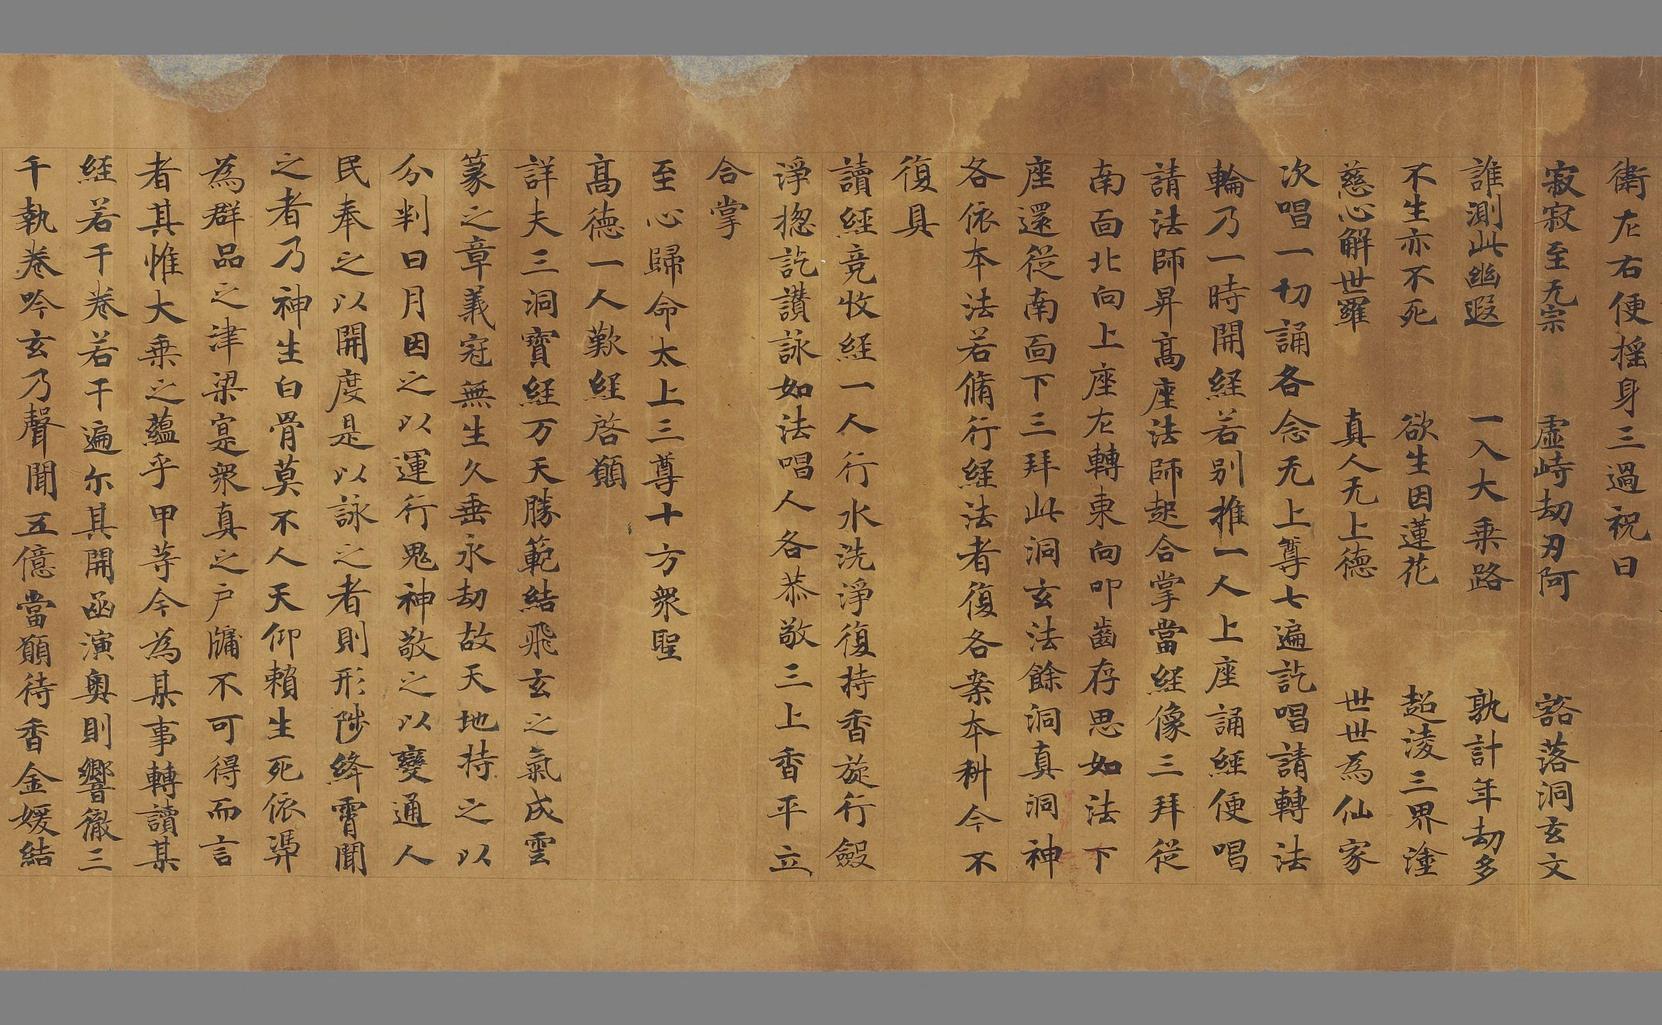 衛左右便揺身三過祝曰
寂寂至无宗 虛峙劫刃阿 豁落洞玄文
誰測此幽遐 一入大乗路 孰計年劫多
不生亦不死 欲生因蓮花 超淩三界塗
慈心解世羅 真人无上德 世世為仙家
次唱一切誦各念无上尊七遍訖唱請轉法
輪乃一時開経若别推一人上座誦經便唱
請法師昇髙座法師起合掌當経像三拜従
南面北向上座左轉東向叩齒存思如法下
座還従南面下三拜此洞玄法餘洞真洞神
各依本法若脩行経法者復各案本科今不
復具
讀経竟收経一人行水洗淨復持香旋行斂
淨揔訖讚詠如法唱人各恭敬三上香平立
合掌
至心歸命太上三尊十方衆聖
髙德一人歎経啓願
詳夫三洞寶経万天勝範結飛玄之氣成雲
篆之章義冠無生久垂永劫故天地持之以
分判日月因之以運行鬼神敬之以變通人
民奉之以開度是以詠之者則形陟絳霄聞
之者乃神生白骨莫不人天仰賴生死依馮
為群品之津梁寔衆真之户牖不可得而言
者其惟大乗之蘊乎甲等今為某事轉讀某
経若干卷若干遍尔其開函演奥則響徹三
千執卷吟玄乃聲聞五億當願待香金媛結